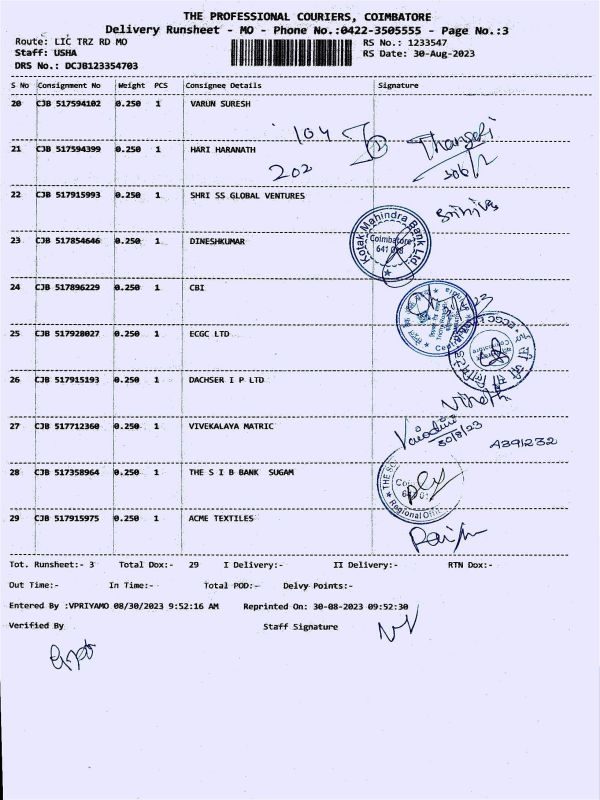 THE PROFESSIONAL COURIERS, COIMBATORE
Delivery Runsheet - MO - Phone No.:0422-3505555 - Page No.:3
Route: LIC TRZ RD MO
RS No.: 1233547
Staff: USHA
RS Date: 30-Aug-2023
DRS No.: DCJB123354703
S No Consignment No Weight PCS Consignee Details Signature
20 CJB 517594102 0.250 1 VARUN SURESH
104
21 CJB 517594399 0.250 1 HARI HARANATH
202
22 CJB 517915993 0.250 1 SHRI SS GLOBAL VENTURES
23 CJB 517854646 0.250 1 DINESHKUMAR
Kotak Mahindra Bank Ltd.
Coimbatore
24 CJB 517896229 0.250 1 CBI
25 CJB 517928027 0.250 1 ECGC LTD
26 CJB 517915193 0.250 1 DACHSER I P LTD
27 CJB 517712360 0.250 1 VIVEKALAYA MATRIC
30/8/23
28 CJB 517358964 0.250 1 THE S I B BANK SUGAM
29 CJB 517915975 0.250 1 ACME TEXTILES
Tot. Runsheet:- 3 Total Dox:- 29 I Delivery:- II Delivery:- RTN Dox:-
Out Time:- In Time:- Total POD:- Delvy Points:-
Entered By :VPRIYAMO 08/30/2023 9:52:16 AM Reprinted On: 30-08-2023 09:52:30
Verified By Staff Signature